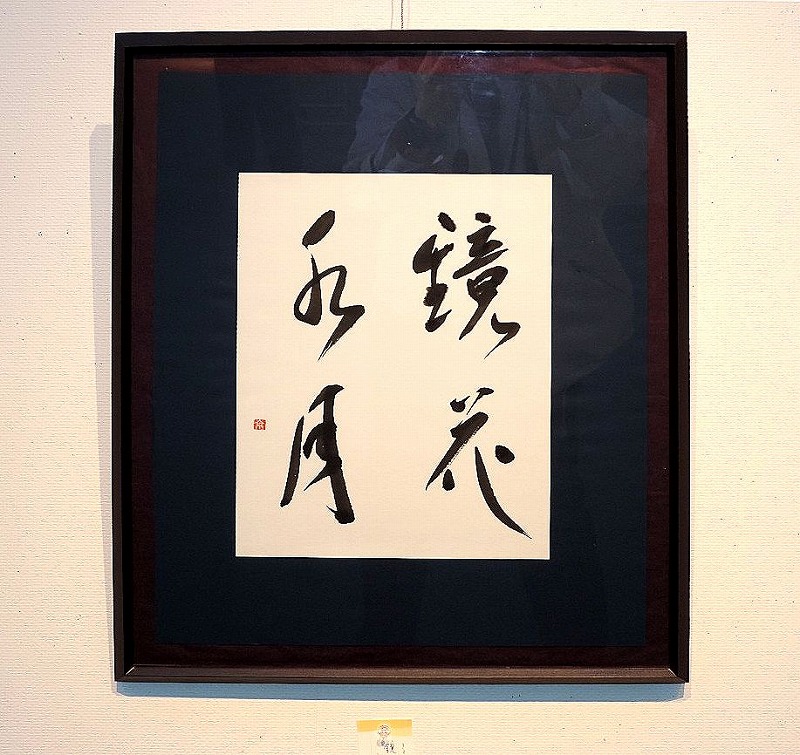 鏡花
水月